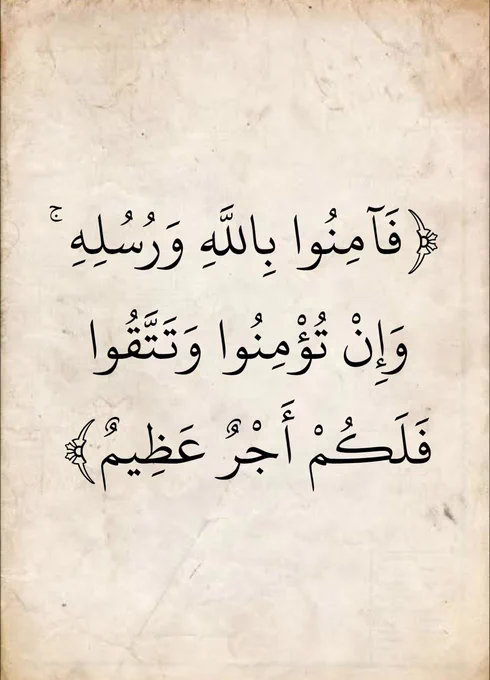 ﴿فَآمِنُوا بِاللَّهِ وَرُسُلِهِ ۚ
وَإِنْ تُؤْمِنُوا وَتَتَّقُوا
فَلَكُمْ أَجْرٌ عَظِيمٌ﴾